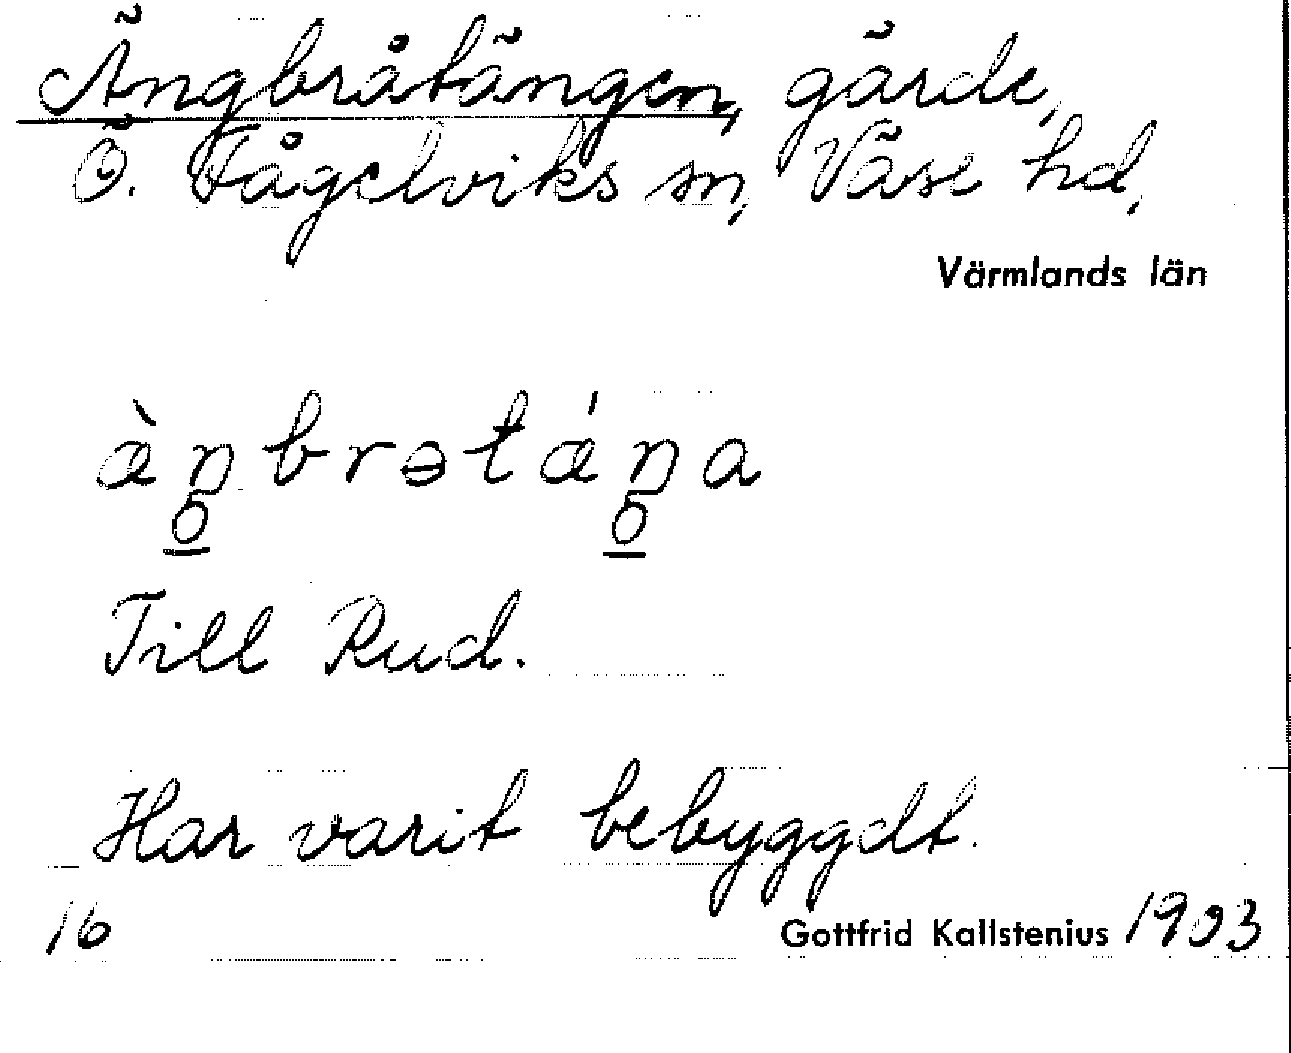 Ängbråtängen, gärde,
Ö. Fågelviks sn, Väse hd,
Värmlands län
æ̀ŋbrətǽŋa
Till Rud.
Har varit bebyggdt.
16
Gottfrid Kallstenius 1903